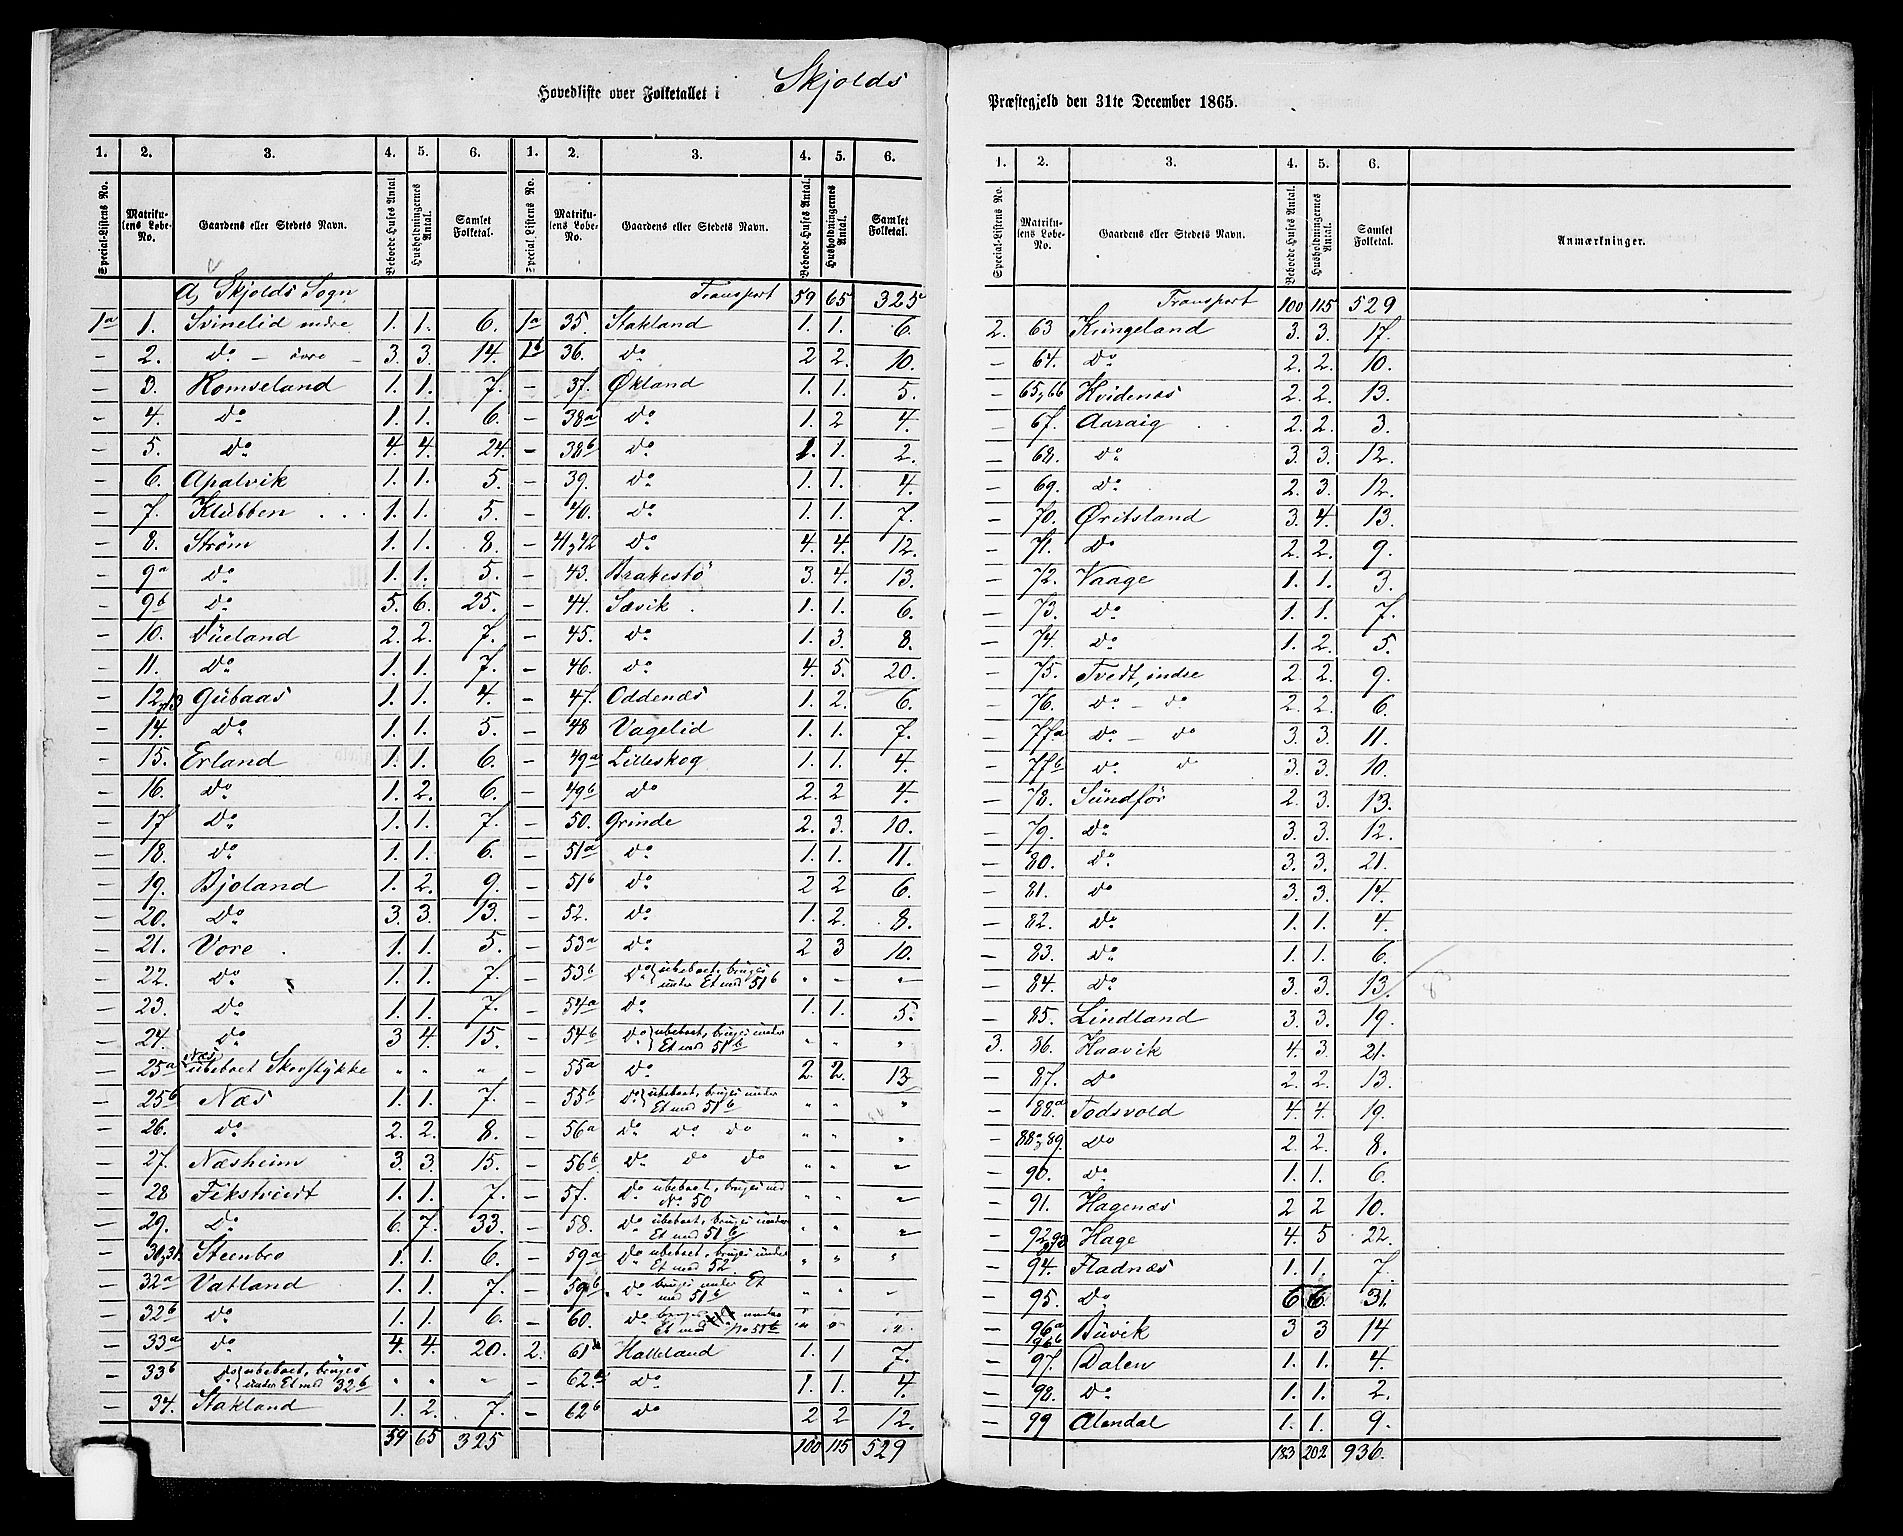 Hovedliste over Folketallet i Skjolds
1. 2. 3. 4. 5. 6. 1. 2. 3. 4. 5. 6.
Special-Listens No. Matrikulens Løbe-No. Gaardens eller Stedets Navn. Beboede Huses Antal Husholdningernes Antal. Samlet Folketal. Special-Listens No. Matrikulens Løbe-No. Gaardens eller Stedets Navn. Beboede Huses Antal. Husholdningernes Antal. Samlet Folketal.
A, Skjolds Sogn
1a 1. Svinelid indre 1. 1. 6.
– 2. Do – övre – 3. 3. 14.
– 3. Romseland 1. 1. 7.
– 4. Do 1. 1. 6.
– 5. Do 4. 4. 24.
– 6. Apalvik 1. 1. 5.
– 7. Klubben . . . 1. 1. 5.
– 8. Strøm 1. 1. 8.
– 9a Do 1. 1. 5.
– 9b Do 5. 6. 25.
– 10. Dueland 2. 2. 7.
– 11. Do 1. 1. 7.
– 12,13 Gubaas 1. 1. 4.
– 14. Do 1. 1. 5.
– 15. Erland 1. 1. 6.
– 16. Do 1. 2. 6.
– 17 Do 1. 1. 7.
– 18. Do 1. 1. 6.
– 19. Bjoland 1. 2. 9.
– 20. Do 3. 3. 13.
– 21. Vore 1. 1. 5.
– 22. Do 1. 1. 7.
– 23. Do 1. 1. 7.
– 24. Do 3 4. 15.
– 25a Næs ubeboet Skovstykke " " "
– 25b Næs 1. 1. 7.
– 26. Do 2. 2. 8.
– 27. Næsheim 3. 3. 15.
– 28 Fikstvedt 1. 1. 7.
– 29. Do 6. 7. 33.
– 30,31. Steenbro 1. 1. 6.
– 32a Vatland 1. 1. 7.
– 32b Do 1. 1. 6.
– 33a Do 4. 4. 20.
– 33b Do ubeboet, bruges under Et med 32b " " "
– 34. Stakland 1. 2. 7.
59 65 325
Transport 59 65 325
1a 35. Stakland 1. 1. 6.
1b 36. Do 2 2. 10.
– 37. Økland 1. 1. 5.
– 38a Do 1. 2 4.
– 38b Do 1. 1. 2.
– 39. Do 1. 1. 4.
– 40. Do 1. 1. 7.
– 41,42 Do 4. 4. 12.
– 43. Brakestö 3. 4. 13.
– 44. Sævik . 1. 1. 6.
– 45. Do 1. 3. 8.
– 46. Do 4. 5. 20.
– 47. Oddenæs 1. 2. 6.
– 48 Vagelid 1. 1. 7.
– 49a Lilleskog 1. 1. 4.
– 49b Do 2. 2 4.
– 50. Grinde 2. 3. 10.
– 51a Do 1. 1. 11.
– 51b Do 2 2 6.
– 52. Do 1. 2. 8.
– 53a Do 2 3 10.
– 53b Do ubeboet, bruges under Et med 51b " – "
– 54a Do 1. 1. 5.
– 54b Do ubeboet, bruges under Et med 51b " " "
– 55a Do 2. 2. 13
– 55b Do ubeboet, bruges under Et med 51b " " "
– 56a Do Do Do " " "
– 56b Do Do Do " " "
– 57. Do ubeboet, bruges med No. 50 " " "
– 58. Do ubeboet, bruges under Et med 51b " " "
– 59a Do ubeboet, bruges under Et med 52 " " "
– 59b Do bruges under Et med 51b " " "
– 60. Do bruges under Et med No 51b " " "
2. 61 Halleland 1. 1 7.
– 62a Do 1. 1. 4.
– 62b Do 2 2 12.
100 115 529
Præstegjeld den 31te December 1865.
1. 2. 3. 4. 5. 6.
Special-Listens No. Matrikulens Løbe-No. Gaardens eller Stedets Navn. Beboede Huses Antal. Husholdningernes Antal. Samlet Folketal. Anmærkninger.
Transport 100 115 529
2. 63 Kvingeland 3. 3. 17.
– 64. Do 2. 2. 10.
– 65,66 Hvidenæs 2. 2. 13.
– 67. Aaraig . . 2. 2. 3.
– 68. Do 3. 3. 12.
– 69. Do 2. 3. 12.
– 70. Øritsland 3. 4. 13.
– 71. Do 2. 2. 9.
– 72. Vaage 1. 1. 3.
– 73. Do 1. 1. 7.
– 74. Do 1. 2. 5.
– 75. Tvedt, indre 2. 2. 9.
– 76. Do – do 2. 2. 6.
– 77a Do – do 3. 3. 11.
– 77b Do do 3. 3. 10.
– 78. Sundfør 2. 3. 13.
– 79. Do 3. 3. 12.
– 80. Do 3. 3. 21.
– 81. Do 3. 3. 14.
– 82. Do 1. 1. 4.
– 83. Do 1. 1. 6.
– 84. Do 3. 3. 13.
– 85. Lindland 3. 3. 19.
3. 86. Haavik 4. 3. 21.
– 87. Do 2. 2. 13.
– 88a Todsvold 4. 4. 19.
– 88a,89. Do 2. 2. 8.
– 90. Do 1. 1. 6.
– 91. Hagenæs 2 2 10.
– 92,93 Hage 4. 5 22.
– 94. Fladnæs 1. 1. 7.
– 95. Do 6 6. 31.
– 96a 96b Buvik 3 3 14
– 97. Dalen 1. 1. 4.
– 98. Do 1. 1. 2.
– 99 Alendal 1. 1. 9.
183 202 936.